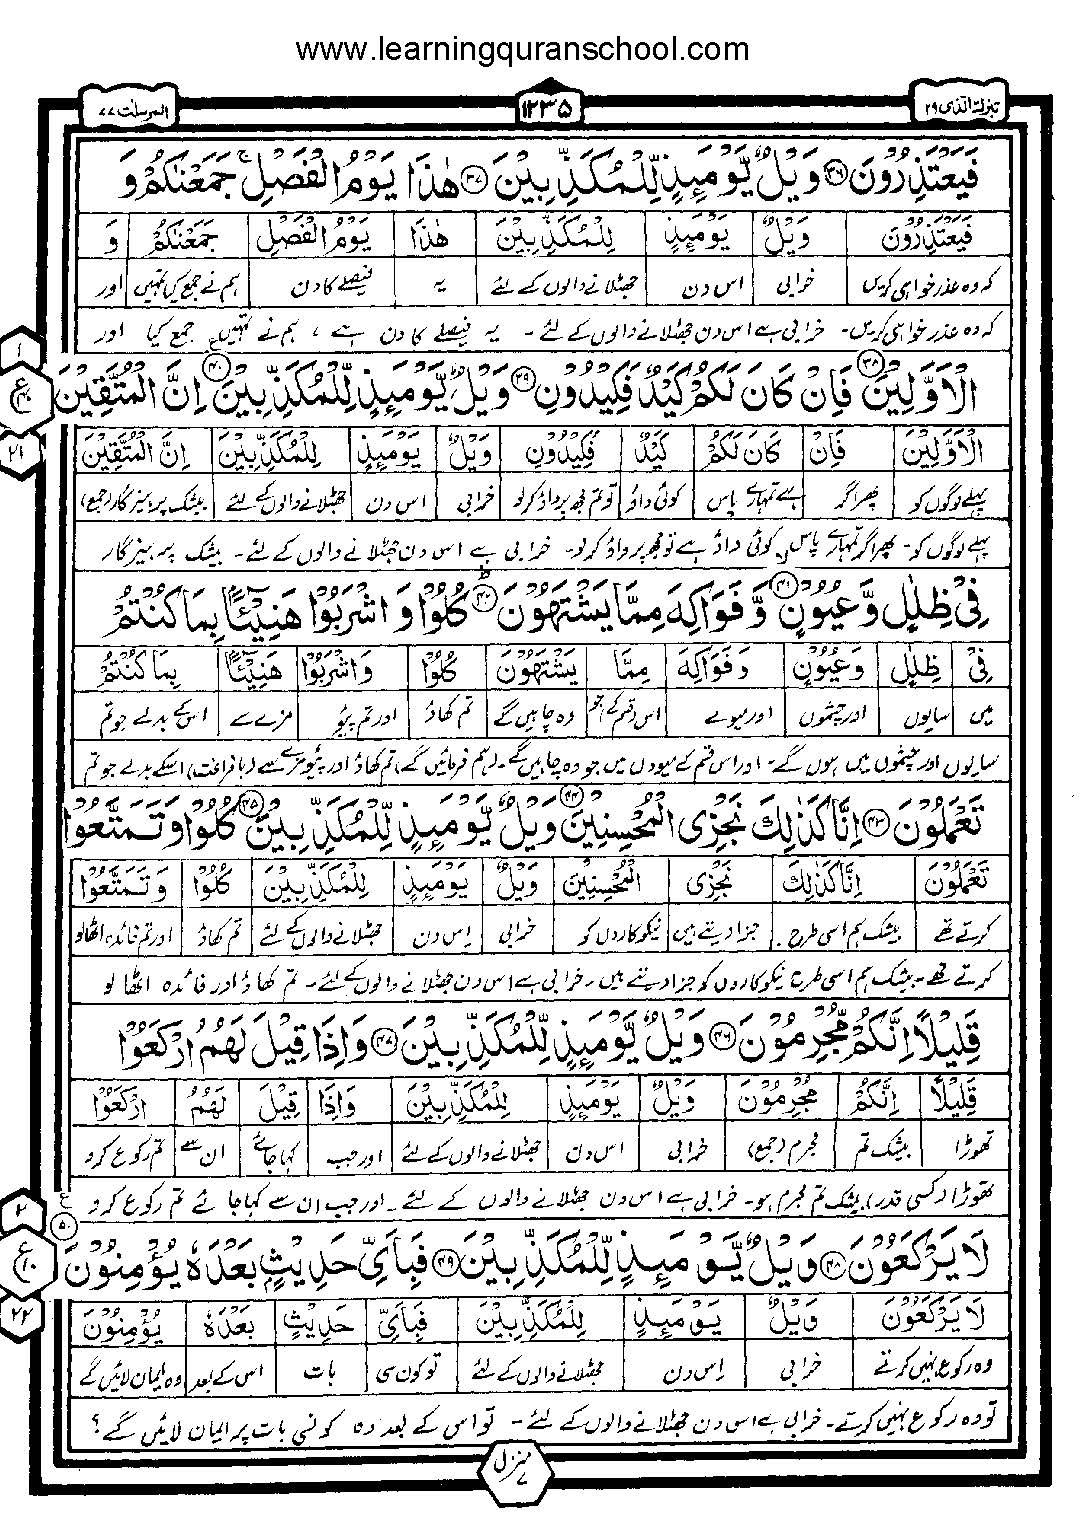 www.learningquranschool.com
تبٰرك الذى ٢٩
١٢٣٥
المرسلٰت ٧٧
فَيَعْتَذِرُوْنَ ﴿٣٦﴾ وَيْلٌ يَّوْمَئِذٍ لِّلْمُكَذِّبِيْنَ ﴿٣٧﴾ هٰذَا يَوْمُ الْفَصْلِ ۚ جَمَعْنٰكُمْ وَ
فَيَعْتَذِرُوْنَ وَيْلٌ يَوْمَئِذٍ لِلْمُكَذِّبِيْنَ هٰذَا يَوْمُ الْفَصْلِ جَمَعْنٰكُمْ وَ
کہ وہ عذر خواہی کریں خرابی اس دن جھٹلانے والوں کے لئے یہ فیصلے کا دن ہم نے جمع کیا تمہیں اور
کہ وہ عذر خواہی کریں۔ خرابی ہے اس دن جھٹلانے والوں کے لئے۔ یہ فیصلے کا دن ہے، ہم نے تمہیں جمع کیا اور
١
ع
٤٠
٢١
الْاَوَّلِيْنَ ﴿٣٨﴾ فَاِنْ كَانَ لَكُمْ كَيْدٌ فَكِيْدُوْنِ ﴿٣٩﴾ وَيْلٌ يَّوْمَئِذٍ لِّلْمُكَذِّبِيْنَ ﴿٤٠﴾ اِنَّ الْمُتَّقِيْنَ
الْاَوَّلِيْنَ فَاِنْ كَانَ لَكُمْ كَيْدٌ فَكِيْدُوْنِ وَيْلٌ يَوْمَئِذٍ لِلْمُكَذِّبِيْنَ اِنَّ الْمُتَّقِيْنَ
پہلے لوگوں کو پھر اگر ہے تمہارے پاس کوئی داؤ تو تم مجھ پر داؤ کرلو خرابی اس دن جھٹلانے والوں کے لئے بیشک پرہیز گار (جمع)
پہلے لوگوں کو۔ پھر اگر تمہارے پاس کوئی داؤ ہے تو مجھ پر داؤ کرلو۔ خرابی ہے اس دن جھٹلانے والوں کے لئے۔ بیشک پرہیز گار
فِىْ ظِلٰلٍ وَّعُيُوْنٍ ﴿٤١﴾ وَّفَوَاكِهَ مِمَّا يَشْتَهُوْنَ ﴿٤٢﴾ كُلُوْا وَاشْرَبُوْا هَنِيْٓئًا بِمَا كُنْتُمْ
فِىْ ظِلٰلٍ وَعُيُوْنٍ وَفَوَاكِهَ مِمَّا يَشْتَهُوْنَ كُلُوْا وَاشْرَبُوْا هَنِيْٓئًا بِمَا كُنْتُمْ
میں سایوں اور چشموں اور میوے اس قسم کے جو وہ چاہیں گے تم کھاؤ اور تم پیو مزے سے اس کے بدلے جو تم
سایوں اور چشموں میں ہوں گے۔ اور اس قسم کے میووں میں جو وہ چاہیں گے۔ (ہم فرمائیں گے) تم کھاؤ اور پیو مزے سے (با فراغت) اسکے بدلے جو تم
تَعْمَلُوْنَ ﴿٤٣﴾ اِنَّا كَذٰلِكَ نَجْزِى الْمُحْسِنِيْنَ ﴿٤٤﴾ وَيْلٌ يَّوْمَئِذٍ لِّلْمُكَذِّبِيْنَ ﴿٤٥﴾ كُلُوْا وَتَمَتَّعُوْا
تَعْمَلُوْنَ اِنَّا كَذٰلِكَ نَجْزِى الْمُحْسِنِيْنَ وَيْلٌ يَوْمَئِذٍ لِلْمُكَذِّبِيْنَ كُلُوْا وَتَمَتَّعُوْا
کرتے تھے بیشک ہم اسی طرح جزا دیتے ہیں نیکوکاروں کو خرابی اس دن جھٹلانے والوں کے لئے تم کھاؤ اور تم فائدہ اٹھالو
کرتے تھے۔ بیشک ہم اسی طرح نیکوکاروں کو جزا دیتے ہیں۔ خرابی ہے اس دن جھٹلانے والوں کے لئے۔ تم کھاؤ اور فائدہ اٹھا لو
قَلِيْلًا اِنَّكُمْ مُّجْرِمُوْنَ ﴿٤٦﴾ وَيْلٌ يَّوْمَئِذٍ لِّلْمُكَذِّبِيْنَ ﴿٤٧﴾ وَاِذَا قِيْلَ لَهُمُ ارْكَعُوْا
قَلِيْلًا اِنَّكُمْ مُجْرِمُوْنَ وَيْلٌ يَوْمَئِذٍ لِلْمُكَذِّبِيْنَ وَاِذَا قِيْلَ لَهُمُ ارْكَعُوْا
تھوڑا بیشک تم مجرم (جمع) خرابی اس دن جھٹلانے والوں کے لئے اور جب کہا جائے ان سے تم رکوع کرو
تھوڑا (کسی قدر) بیشک تم مجرم ہو۔ خرابی ہے اس دن جھٹلانے والوں کے لئے۔ اور جب ان سے کہا جائے تم رکوع کرو
٢
ع
١٠
٢٢
لَا يَرْكَعُوْنَ ﴿٤٨﴾ وَيْلٌ يَّوْمَئِذٍ لِّلْمُكَذِّبِيْنَ ﴿٤٩﴾ فَبِاَىِّ حَدِيْثٍۢ بَعْدَهٗ يُؤْمِنُوْنَ ﴿٥٠﴾ ع
لَا يَرْكَعُوْنَ وَيْلٌ يَوْمَئِذٍ لِلْمُكَذِّبِيْنَ فَبِاَىِّ حَدِيْثٍ بَعْدَهٗ يُؤْمِنُوْنَ
وہ رکوع نہیں کرتے خرابی اس دن جھٹلانے والوں کے لئے تو کون سی بات اس کے بعد وہ ایمان لائیں گے
تو وہ رکوع نہیں کرتے۔ خرابی ہے اس دن جھٹلانے والوں کے لئے۔ تو اس کے بعد وہ کونسی بات پر ایمان لائیں گے؟
منزل ٧